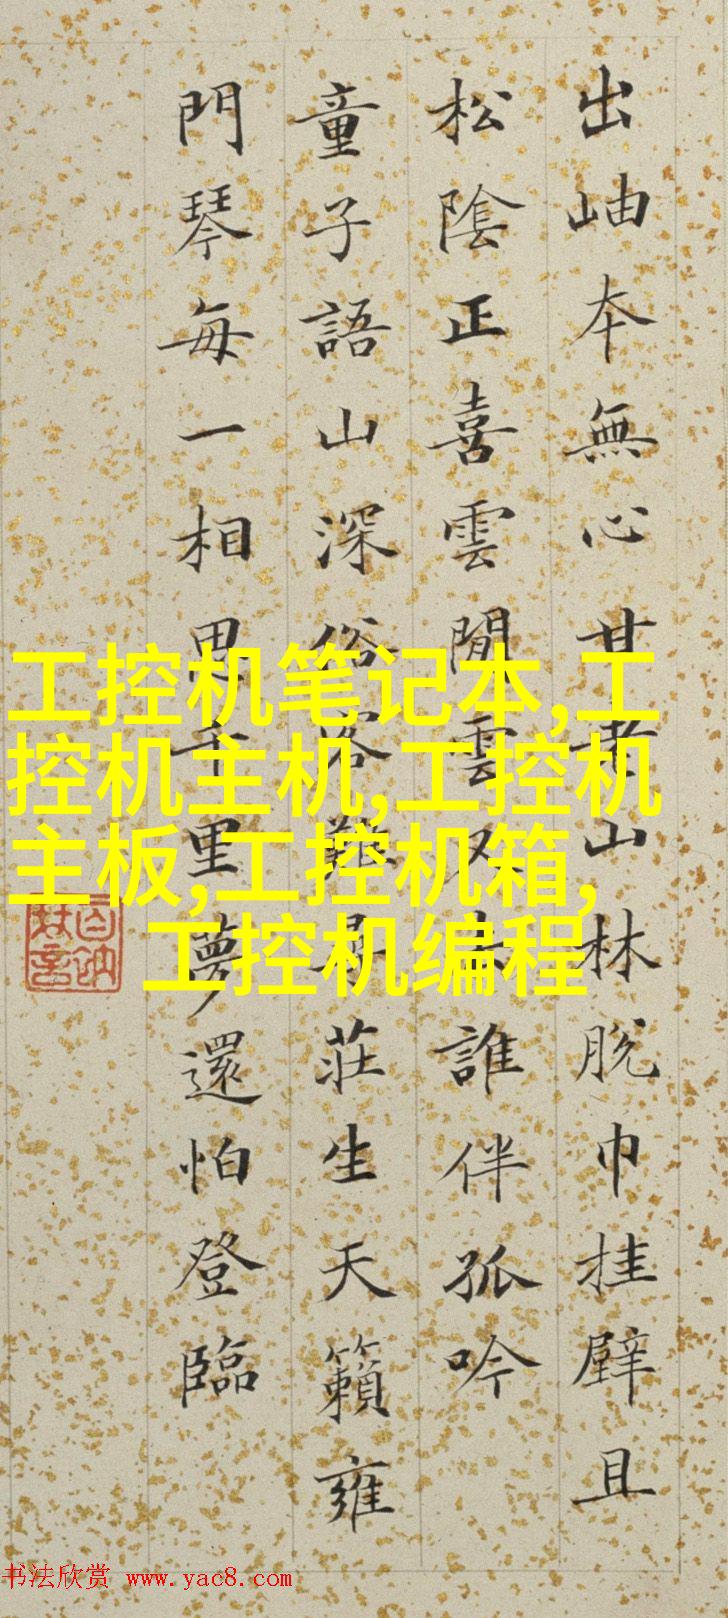 出岫本無心甘老山林脫巾挂壁且
松陰正喜雲閒雲又去誰伴孤吟
童子語山深俗客難尋莊生天籟雍
門琴每一相思千里夢還怕登臨
工控机笔记本,工
控机主机,工控机
主板,工控机箱,
工控机编程
书法欣赏 www.yac8.com